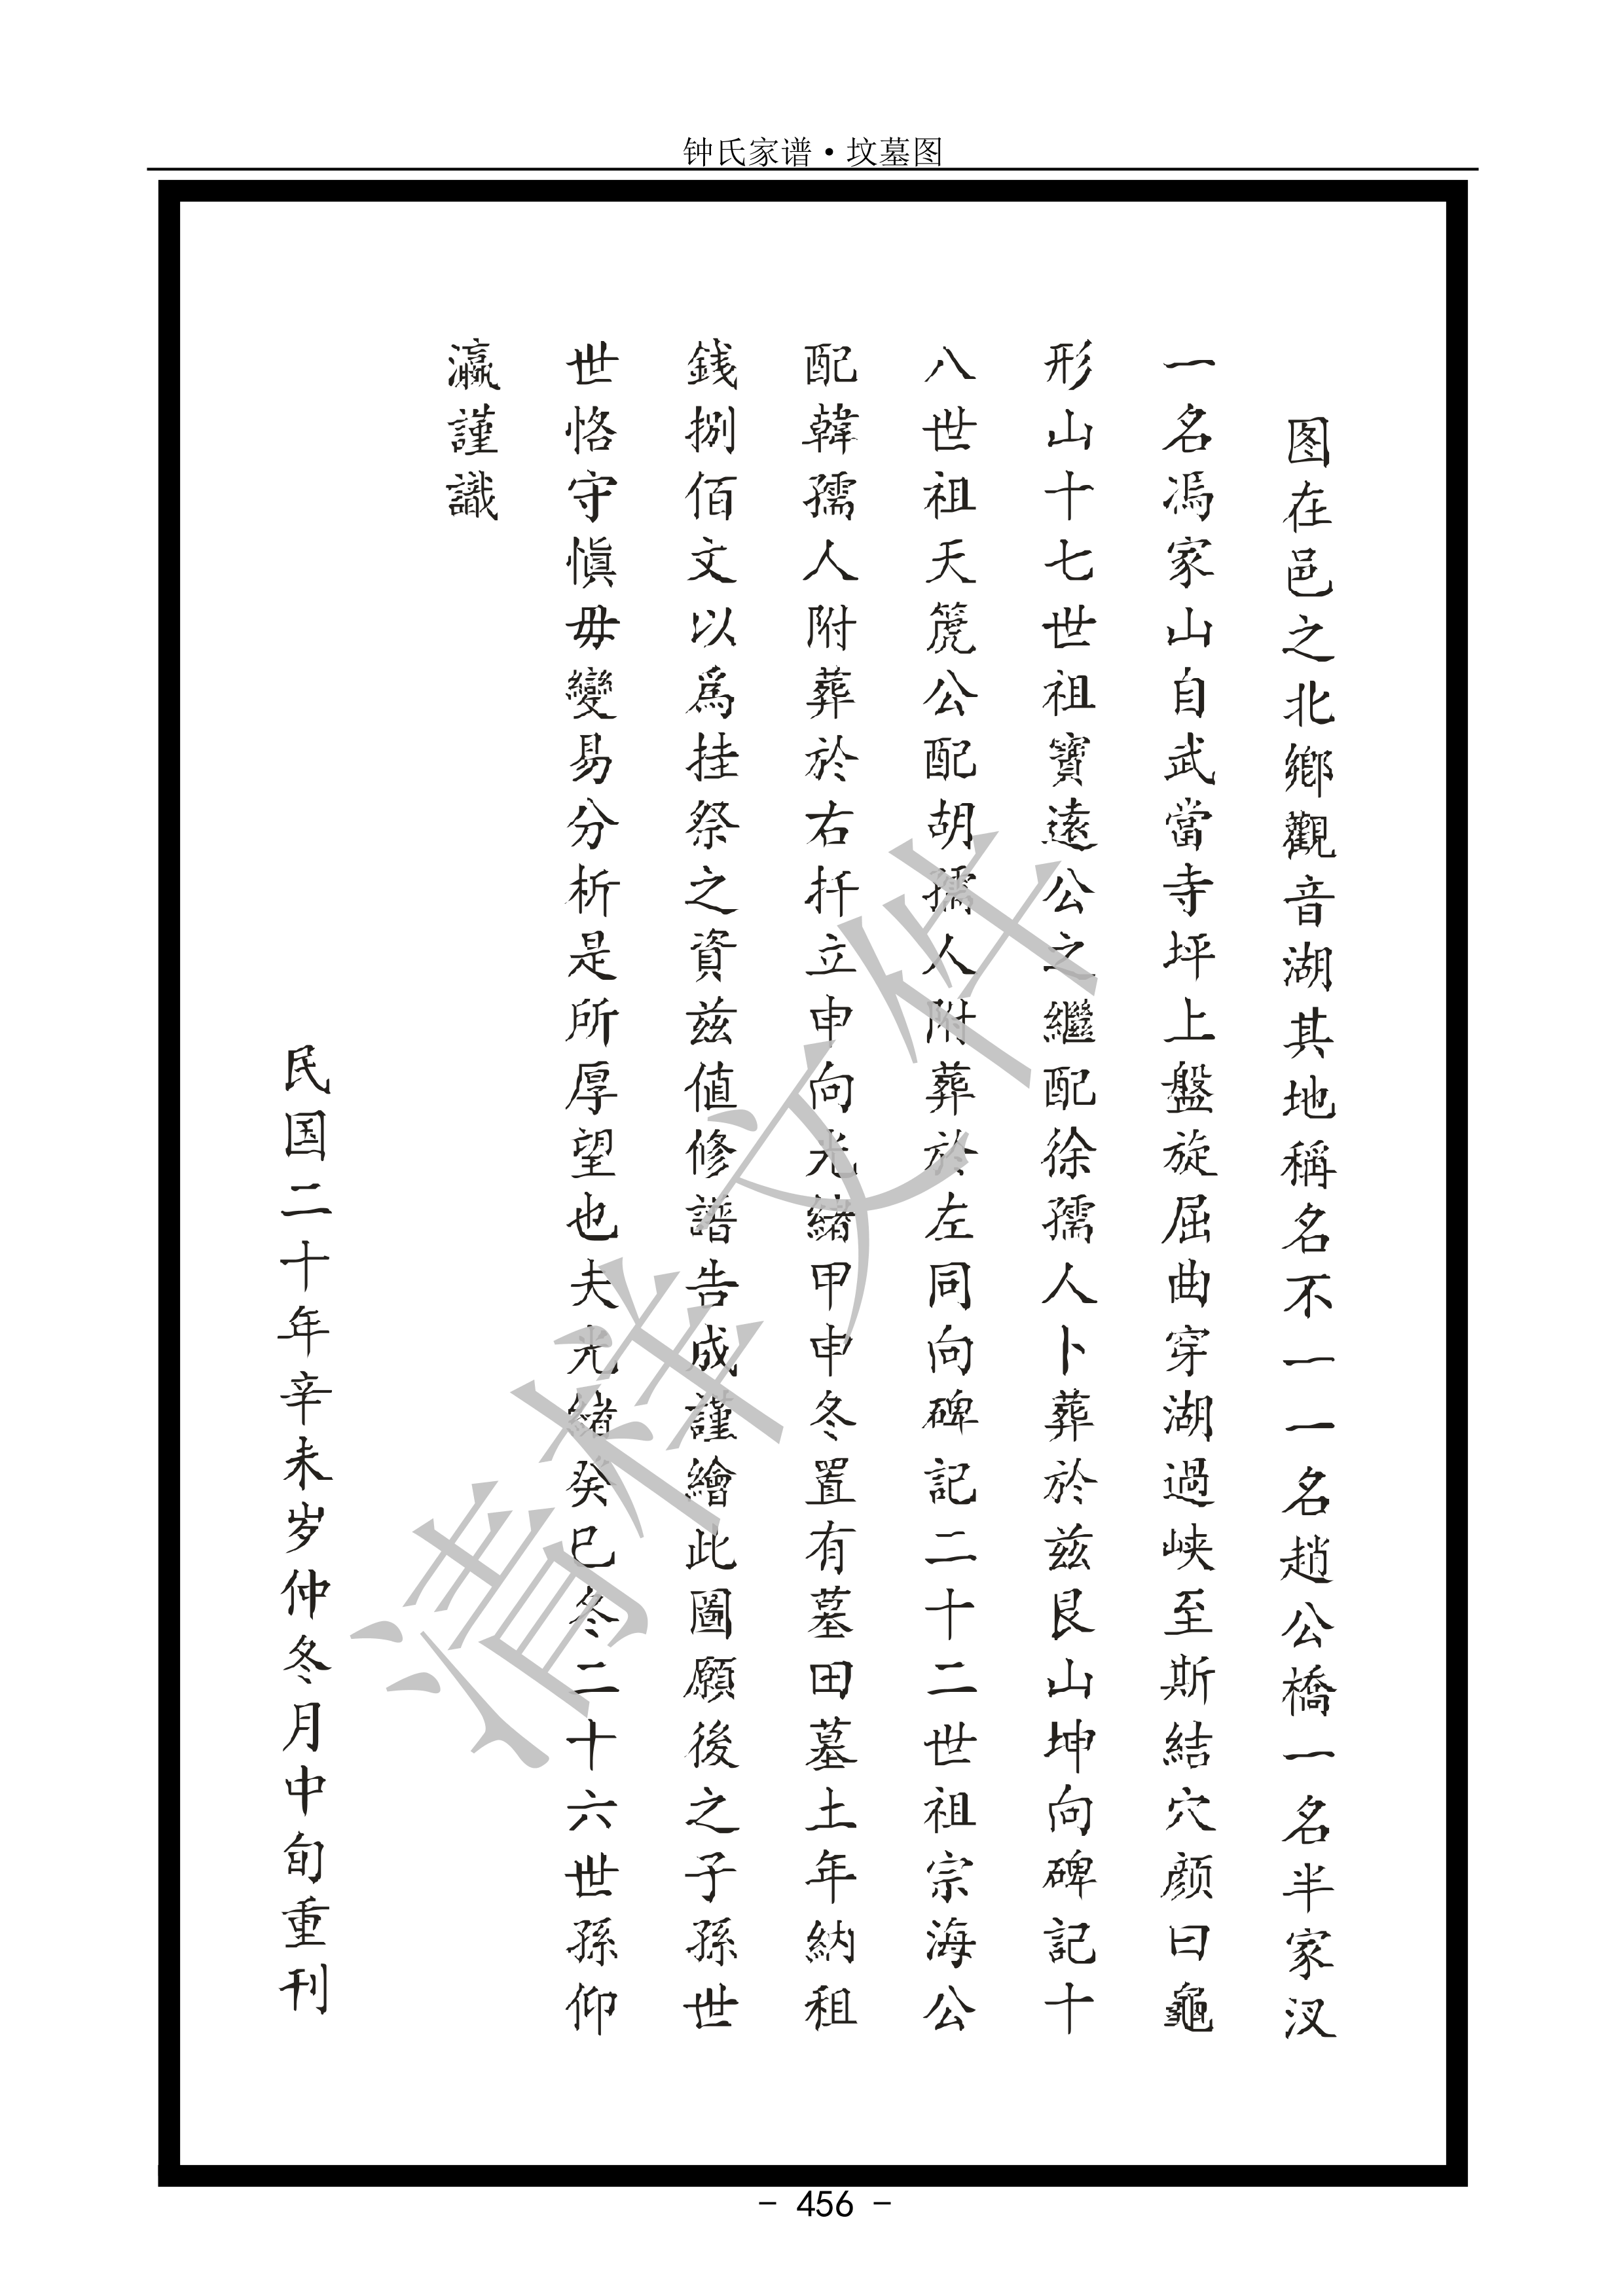 钟氏家谱·坟墓图
图在邑之北鄉觀音湖其地稱名不一一名趙公橋一名半家汊
一名馮家山自武當寺坪上盤旋屈曲穿湖過峡至斯結穴颜曰龜
形山十七世祖寳遠公之繼配徐孺人卜葬於兹艮山坤向碑記十
八世祖天箎公配胡孺人附葬於左同向碑記二十二世祖宗海公
配韓孺人附葬於右扦立申向光緒甲申冬置有墓田墓土年納租
錢捌佰文以爲挂祭之資兹値修譜告成謹繪此圖願後之子孫世
世恪守愼毋變易分析是所厚望也夫光緒癸巳冬二十六世孫仰
瀛謹識
民国二十年辛未岁仲冬月中旬重刊
清样文件
- 456 -